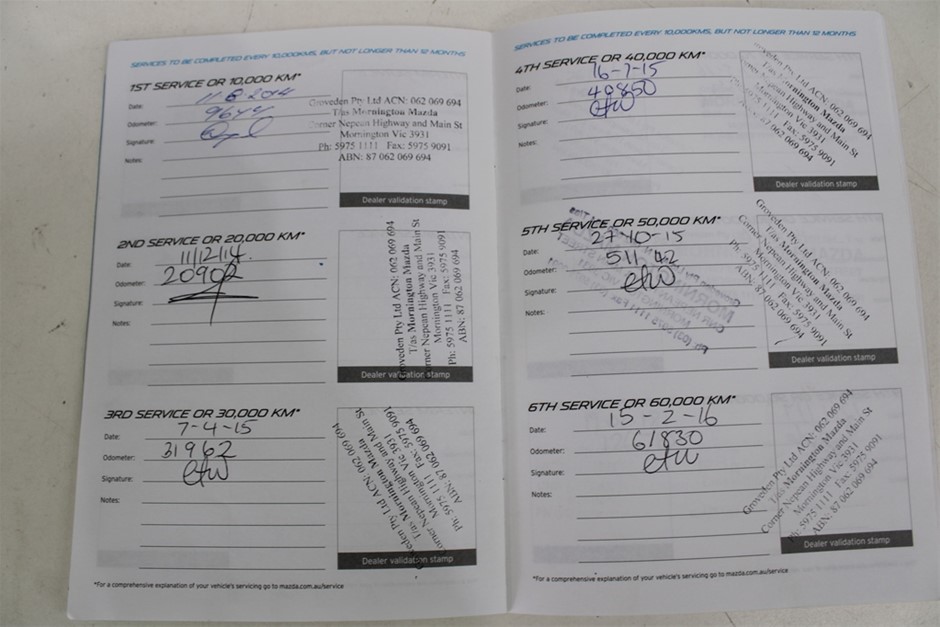 SERVICES TO BE COMPLETED EVERY 10,000KMS, BUT NOT LONGER THAN 12 MONTHS
1ST SERVICE OR 10,000 KM*
Date: 11-8-2014
Odometer: 9644
Signature:
Notes:
Groveden Pty Ltd ACN: 062 069 694
T/as Mornington Mazda
Corner Nepean Highway and Main St
Mornington Vic 3931
Ph: 5975 1111 Fax: 5975 9091
ABN: 87 062 069 694
Dealer validation stamp
2ND SERVICE OR 20,000 KM*
Date: 11/12/14
Odometer: 20902
Signature:
Notes:
Groveden Pty Ltd ACN: 062 069 694
T/as Mornington Mazda
Corner Nepean Highway and Main St
Mornington Vic 3931
Ph: 5975 1111 Fax: 5975 9091
ABN: 87 062 069 694
Dealer validation stamp
3RD SERVICE OR 30,000 KM*
Date: 7-4-15
Odometer: 31962
Signature:
Notes:
Groveden Pty Ltd ACN: 062 069 694
T/as Mornington Mazda
Corner Nepean Highway and Main St
Mornington Vic 3931
Ph: 5975 1111 Fax: 5975 9091
ABN: 87 062 069 694
Dealer validation stamp
*For a comprehensive explanation of your vehicle's servicing go to mazda.com.au/service
SERVICES TO BE COMPLETED EVERY 10,000KMS, BUT NOT LONGER THAN 12 MONTHS
4TH SERVICE OR 40,000 KM*
Date: 16-7-15
Odometer: 40850
Signature:
Notes:
Groveden Pty Ltd ACN: 062 069 694
T/as Mornington Mazda
Corner Nepean Highway and Main St
Mornington Vic 3931
Ph: 5975 1111 Fax: 5975 9091
ABN: 87 062 069 694
Dealer validation stamp
5TH SERVICE OR 50,000 KM*
Date: 27-10-15
Odometer: 51142
Signature:
Notes:
Groveden Pty Ltd ACN: 062 069 694
T/as Mornington Mazda
Corner Nepean Highway and Main St
Mornington Vic 3931
Ph: 5975 1111 Fax: 5975 9091
ABN: 87 062 069 694
Dealer validation stamp
6TH SERVICE OR 60,000 KM*
Date: 15-2-16
Odometer: 61830
Signature:
Notes:
Groveden Pty Ltd ACN: 062 069 694
T/as Mornington Mazda
Corner Nepean Highway and Main St
Mornington Vic 3931
Ph: 5975 1111 Fax: 5975 9091
ABN: 87 062 069 694
Dealer validation stamp
*For a comprehensive explanation of your vehicle's servicing go to mazda.com.au/service